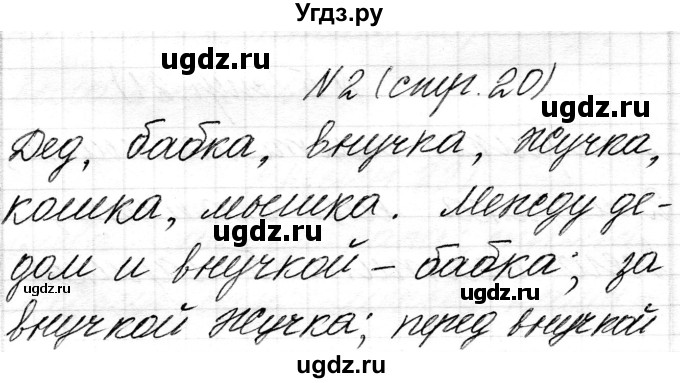 Угдз.ру
ugdz.ru
ugdz.ru
№2 (стр. 20)
ugdz.ru
Дед, бабка, внучка, Жучка,
ugdz.ru
кошка, мышка. Между де-
ugdz.ru
дом и внучкой - бабка; за
ugdz.ru
ugdz.ru
внучкой Жучка; перед внучкой
ugdz.ru